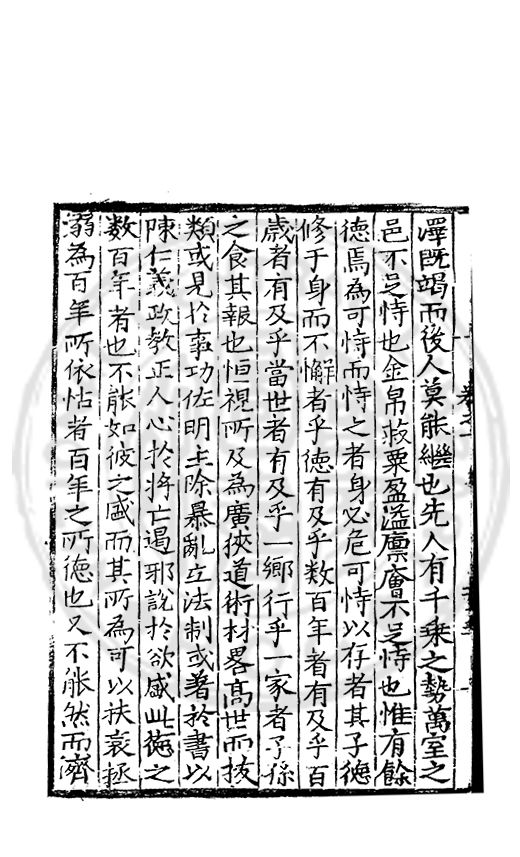 澤既竭而後人莫能繼也先人有千乘之勢萬室之
邑不足恃也金帛菽粟盈溢廩庾不足恃也惟有餘
德焉為可恃而恃之者身必危可恃以存者其子德
修于身而不懈者乎德有及乎数百年者有及乎百
歲者有及乎當世者有及乎一鄉行乎一家者子孫
之食其報也恒視所及為廣狹道術材畧高世而抜
類或見於事功佐明主除暴亂立法制或著於書以
陳仁義政教正人心於將亡遏邪說於欲盛此德之
数百年者也不能如彼之盛而其所為可以扶衰拯
溺為百年所依怙者百年之所德也又不能然而濟